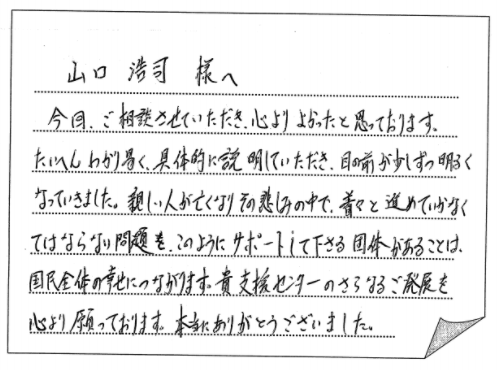 山口 浩司 様へ
今回、ご相談させていただき、心よりよかったと思っております。
たいへんわかり易く、具体的に説明していただき、目の前が少しずつ明るく
なっていきました。親しい人が亡くなりその悲しみの中で、着々と進めていかなく
てはならない問題を、このようにサポートして下さる団体があることは、
国民全体の幸せにつながります。貴支援センターのさらなるご発展を
心より願っております。本当にありがとうございました。